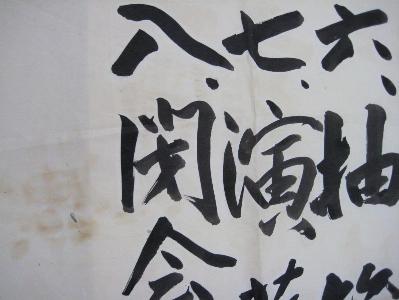 六、抽
七、演
八、閉会